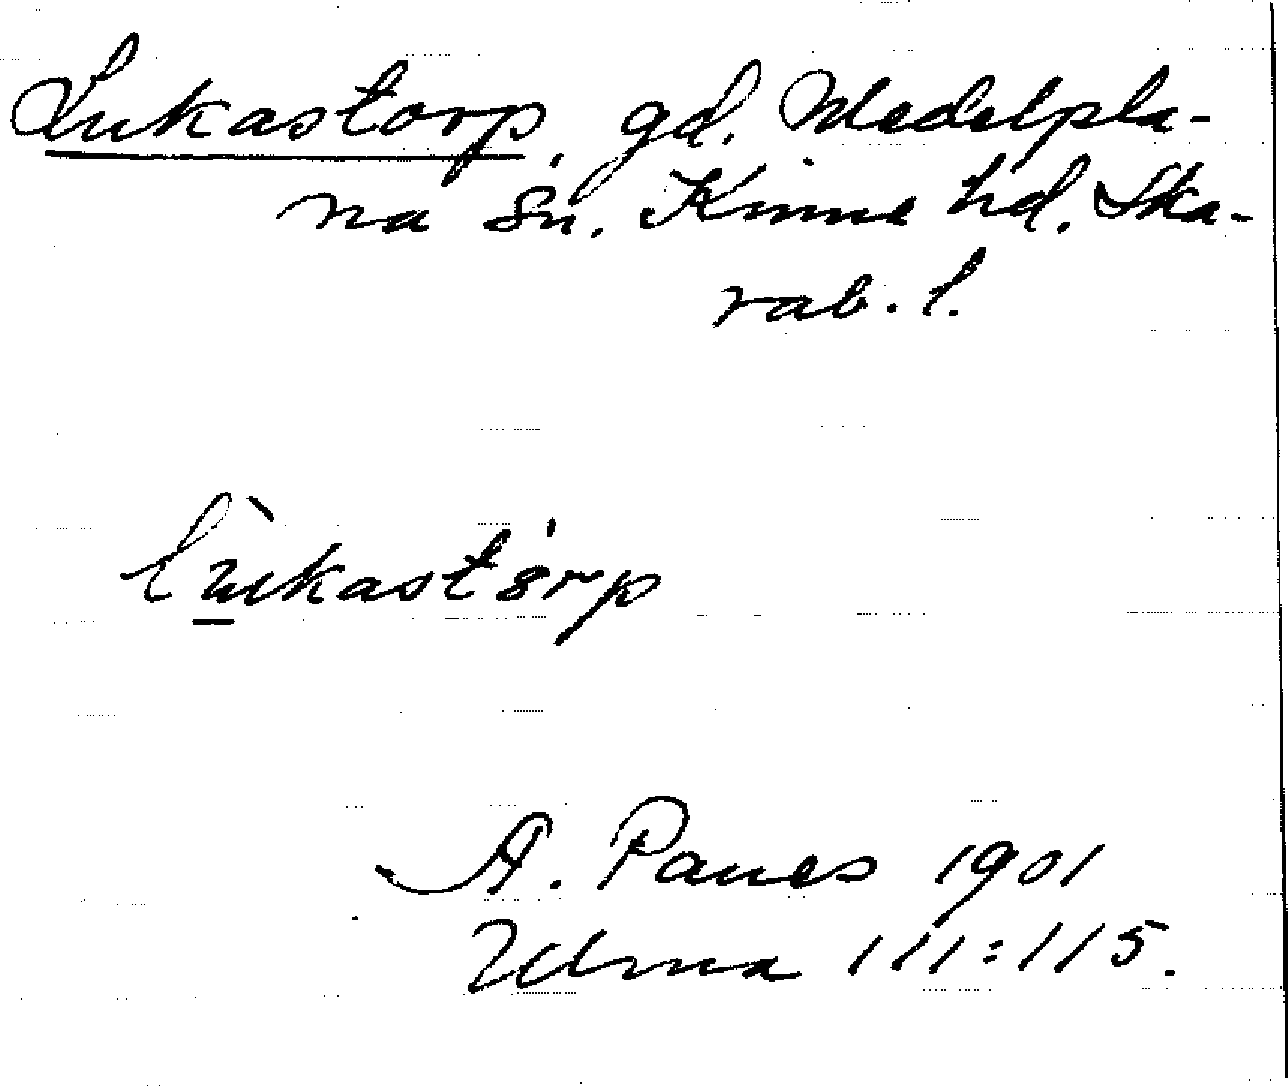 Lukastorp, gd. Medelpla-
na sn. Kinne hd. Ska-
rab. l.
lùkastórp
A. Paues 1901
Ulma 111:115.